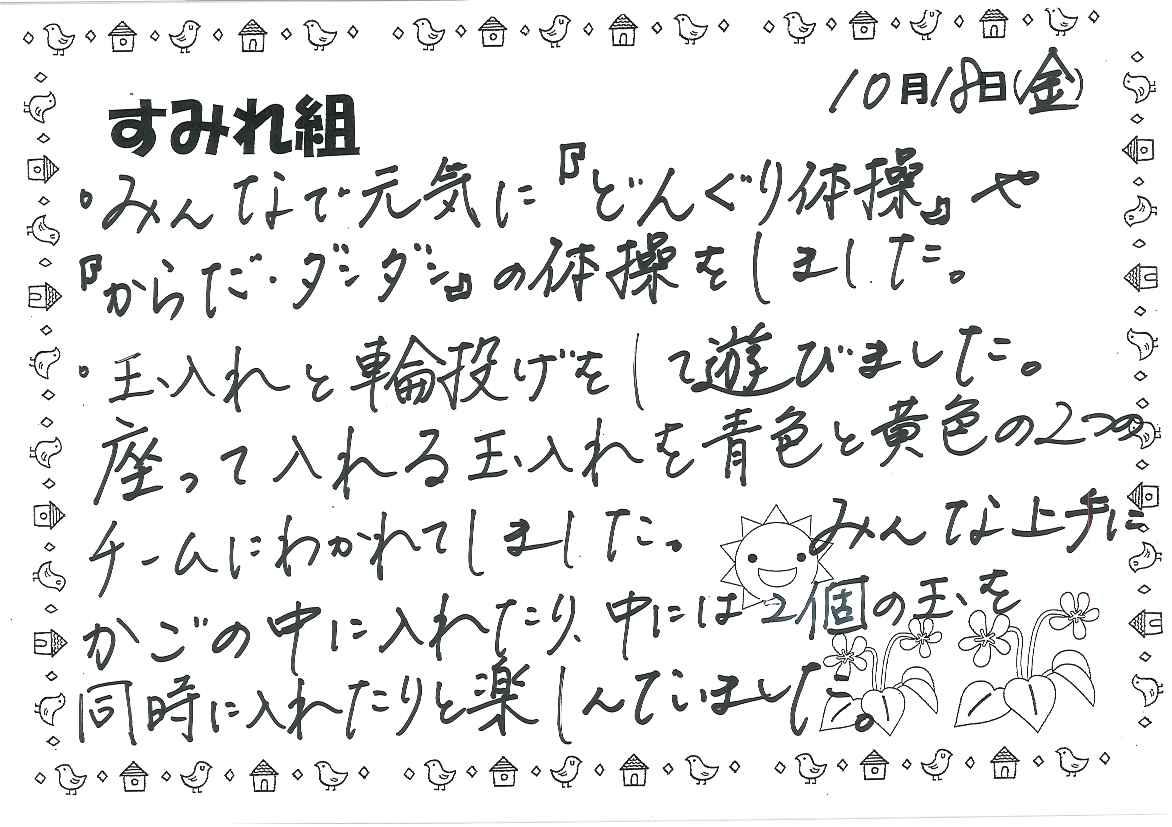 10月18日(金)
すみれ組
・みんなで元気に『どんぐり体操』や
『からだ・ダンダン』の体操をしました。
・玉入れと輪投げをして遊びました。
座って入れる玉入れを青色と黄色の2つの
チームにわかれてしました。みんな上手に
かごの中に入れたり、中には2個の玉を
同時に入れたりと楽しんでいました。